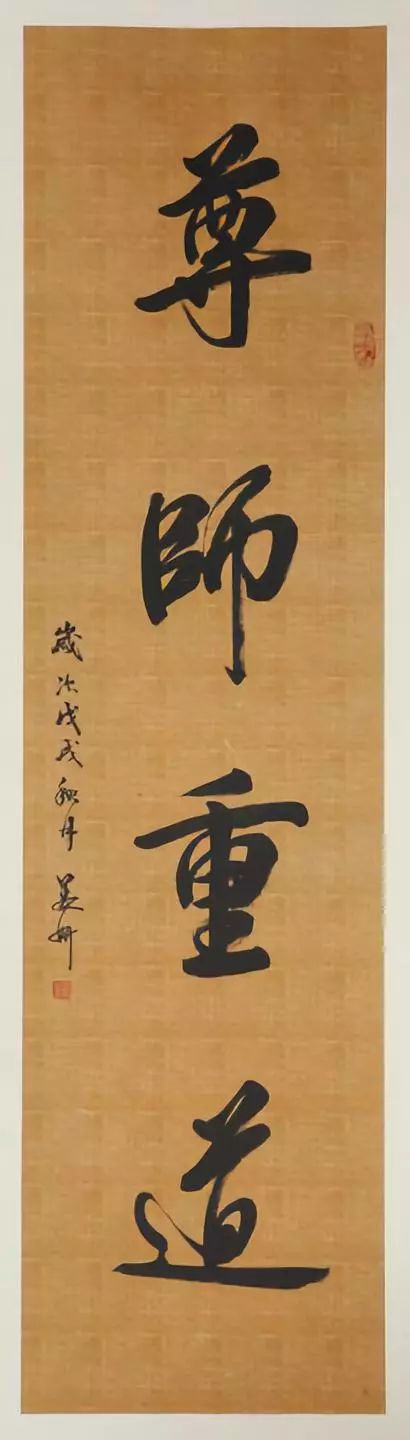 尊師重道
歲次戊戌秋月 美姍